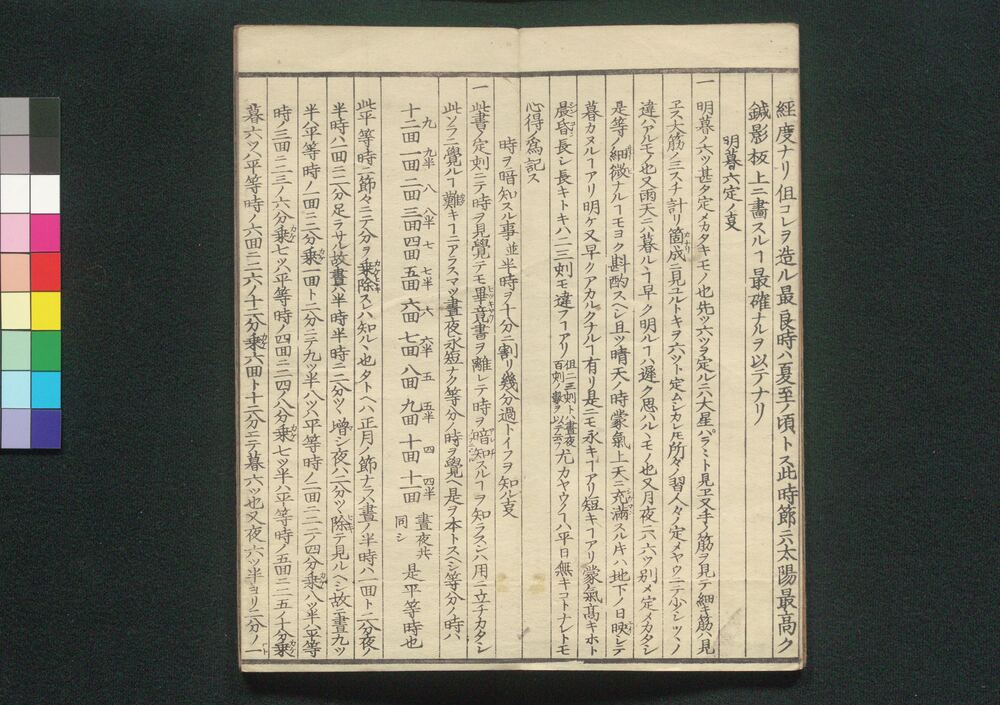 經度ナリ但コレヲ造ル最良時ハ夏至ノ頃トス此時節ニハ太陽最高ク
鍼影板上ニ畵スルヿ最確ナルヲ以テナリ
明暮六定ノ叓
一 明暮ノ六ツ甚タ定メカタキモノ也先ツ六ツヲ定ルニハ大星パラ〳〵ト見ヱ又手ノ筋ヲ見テ細キ筋ハ見
ヱス大筋ノミスチ計リ箇成ニ見ユルトキヲ六ツト定ムシカレ𪜈所々ノ習人々ノ定メヤウニテ少シツヽノ
違ハアルモノ也又雨天ニハ暮ルヿ早ク明ルヿハ遲ク思ハルヽモノ也又月夜ニハ六ツ別メ定メカタシ
是等ノ細微ナルヿモヨク斟酌スヘシ且ツ晴天ノ時蒙氣上天ニ充滿スル𪜈ハ地下ノ日映シテ
暮カヌルヿアリ明ケ又早クアカルクナルヿ有リ是ニモ永キヿアリ短キヿアリ蒙氣髙キホト
晨昏長シ長キトキハ二三刻モ違フヿアリ但二三刻トハ晝夜百刻ノ數ヲ以テ云フ尤カヤウノヿハ平日無キコトナレトモ
心得爲記ス
時ヲ暗知スル事並半時ヲ十分ニ割リ幾分過トイフヲ知ル叓
一 此書ノ定刻ニテ時ヲ見覺テモ畢竟書ヲ離レテ時ヲ暗知スルヿヲ知ラスンハ用ニ立チカタシ
此ソラニ覺ルヿ難キヿニアラスマツ晝夜永短ナク等分ノ時ヲ覺ヘ是ヲ本トスヘシ等分ノ時ハ
九 九半 八 八半 七 七半 六 六半 五 五半 四 四半
十二回一回二回三回四回五回六回七回八回九回十回十一回 晝夜共同シ 是平等時也
此平等時ニ節々ニテ分ヲ乗除スレハ知ルヽ也タトヘハ正月ノ節ナラハ晝ノ半時ハ一回ト二分夜ノ
半時ハ一回ニ二分足ラサル故晝ハ半時半時ニ二分ツヽ增シ夜ハ二分ツヽ除テ見ルヘシ故ニ晝九ツ
半ハ平等時ノ一回ニ二分乗一回ト二分ニテ九ツ半八ツハ平等時ノ二回ニ二ニノ四分乗八ツ半ハ平等
時ノ三回ニ二三ノ六分乗七ツハ平等時ノ四回ニ二四ノ八分乗七ツ半ハ平等時ノ五回ニ二五ノ十分乗
暮六ツハ平等時ノ六回ニ二六ノ十二分乗六回ト十二分ニテ暮六ツ也又夜六ツ半ヨリ二分ノ一